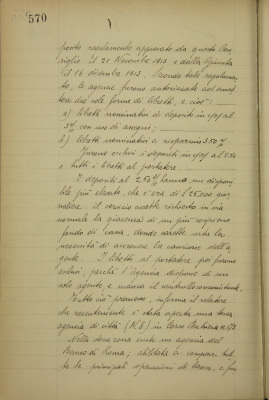 570
posito regolamento approvato da questo Con-
siglio il 21 Novembre 1913 e dalla Giunta
il 16 dicembre 1913. Secondo tale regolamen-
to, le agenzie furono autorizzate ad emet-
tere due sole forme di libretti, e cioè:
a) libretti nominativi di deposito in c/c al
3% con uso di assegni;
b) libretti nominativi a risparmio 3.50%
Furono esclusi i depositi in c/c al 2.50
e tutti i libretti al portatore.
I depositi al 2,50% hanno un disponi-
bile più elevato, che è ora di L 25.000 gior-
naliere: il servizio avrebbe richiesto in via
normale la giacenza di un più cospicuo
fondo di cassa, donde sarebbe sorta la
necessità di accrescere la cauzione dell'a-
gente. I libretti al portatore poi furono
esclusi, perchè l'Agenzia dispone di un
solo agente e manca il controllo
Tutto ciò premesso, informa il relatore
che recentemente è stata aperta una terza
agenzia di città (N. 3) in Corso
Nella stessa zona esiste un'agenzia del
Banco di Roma; abilitata a compiere tut-
te le principali operazioni di banca, e fra